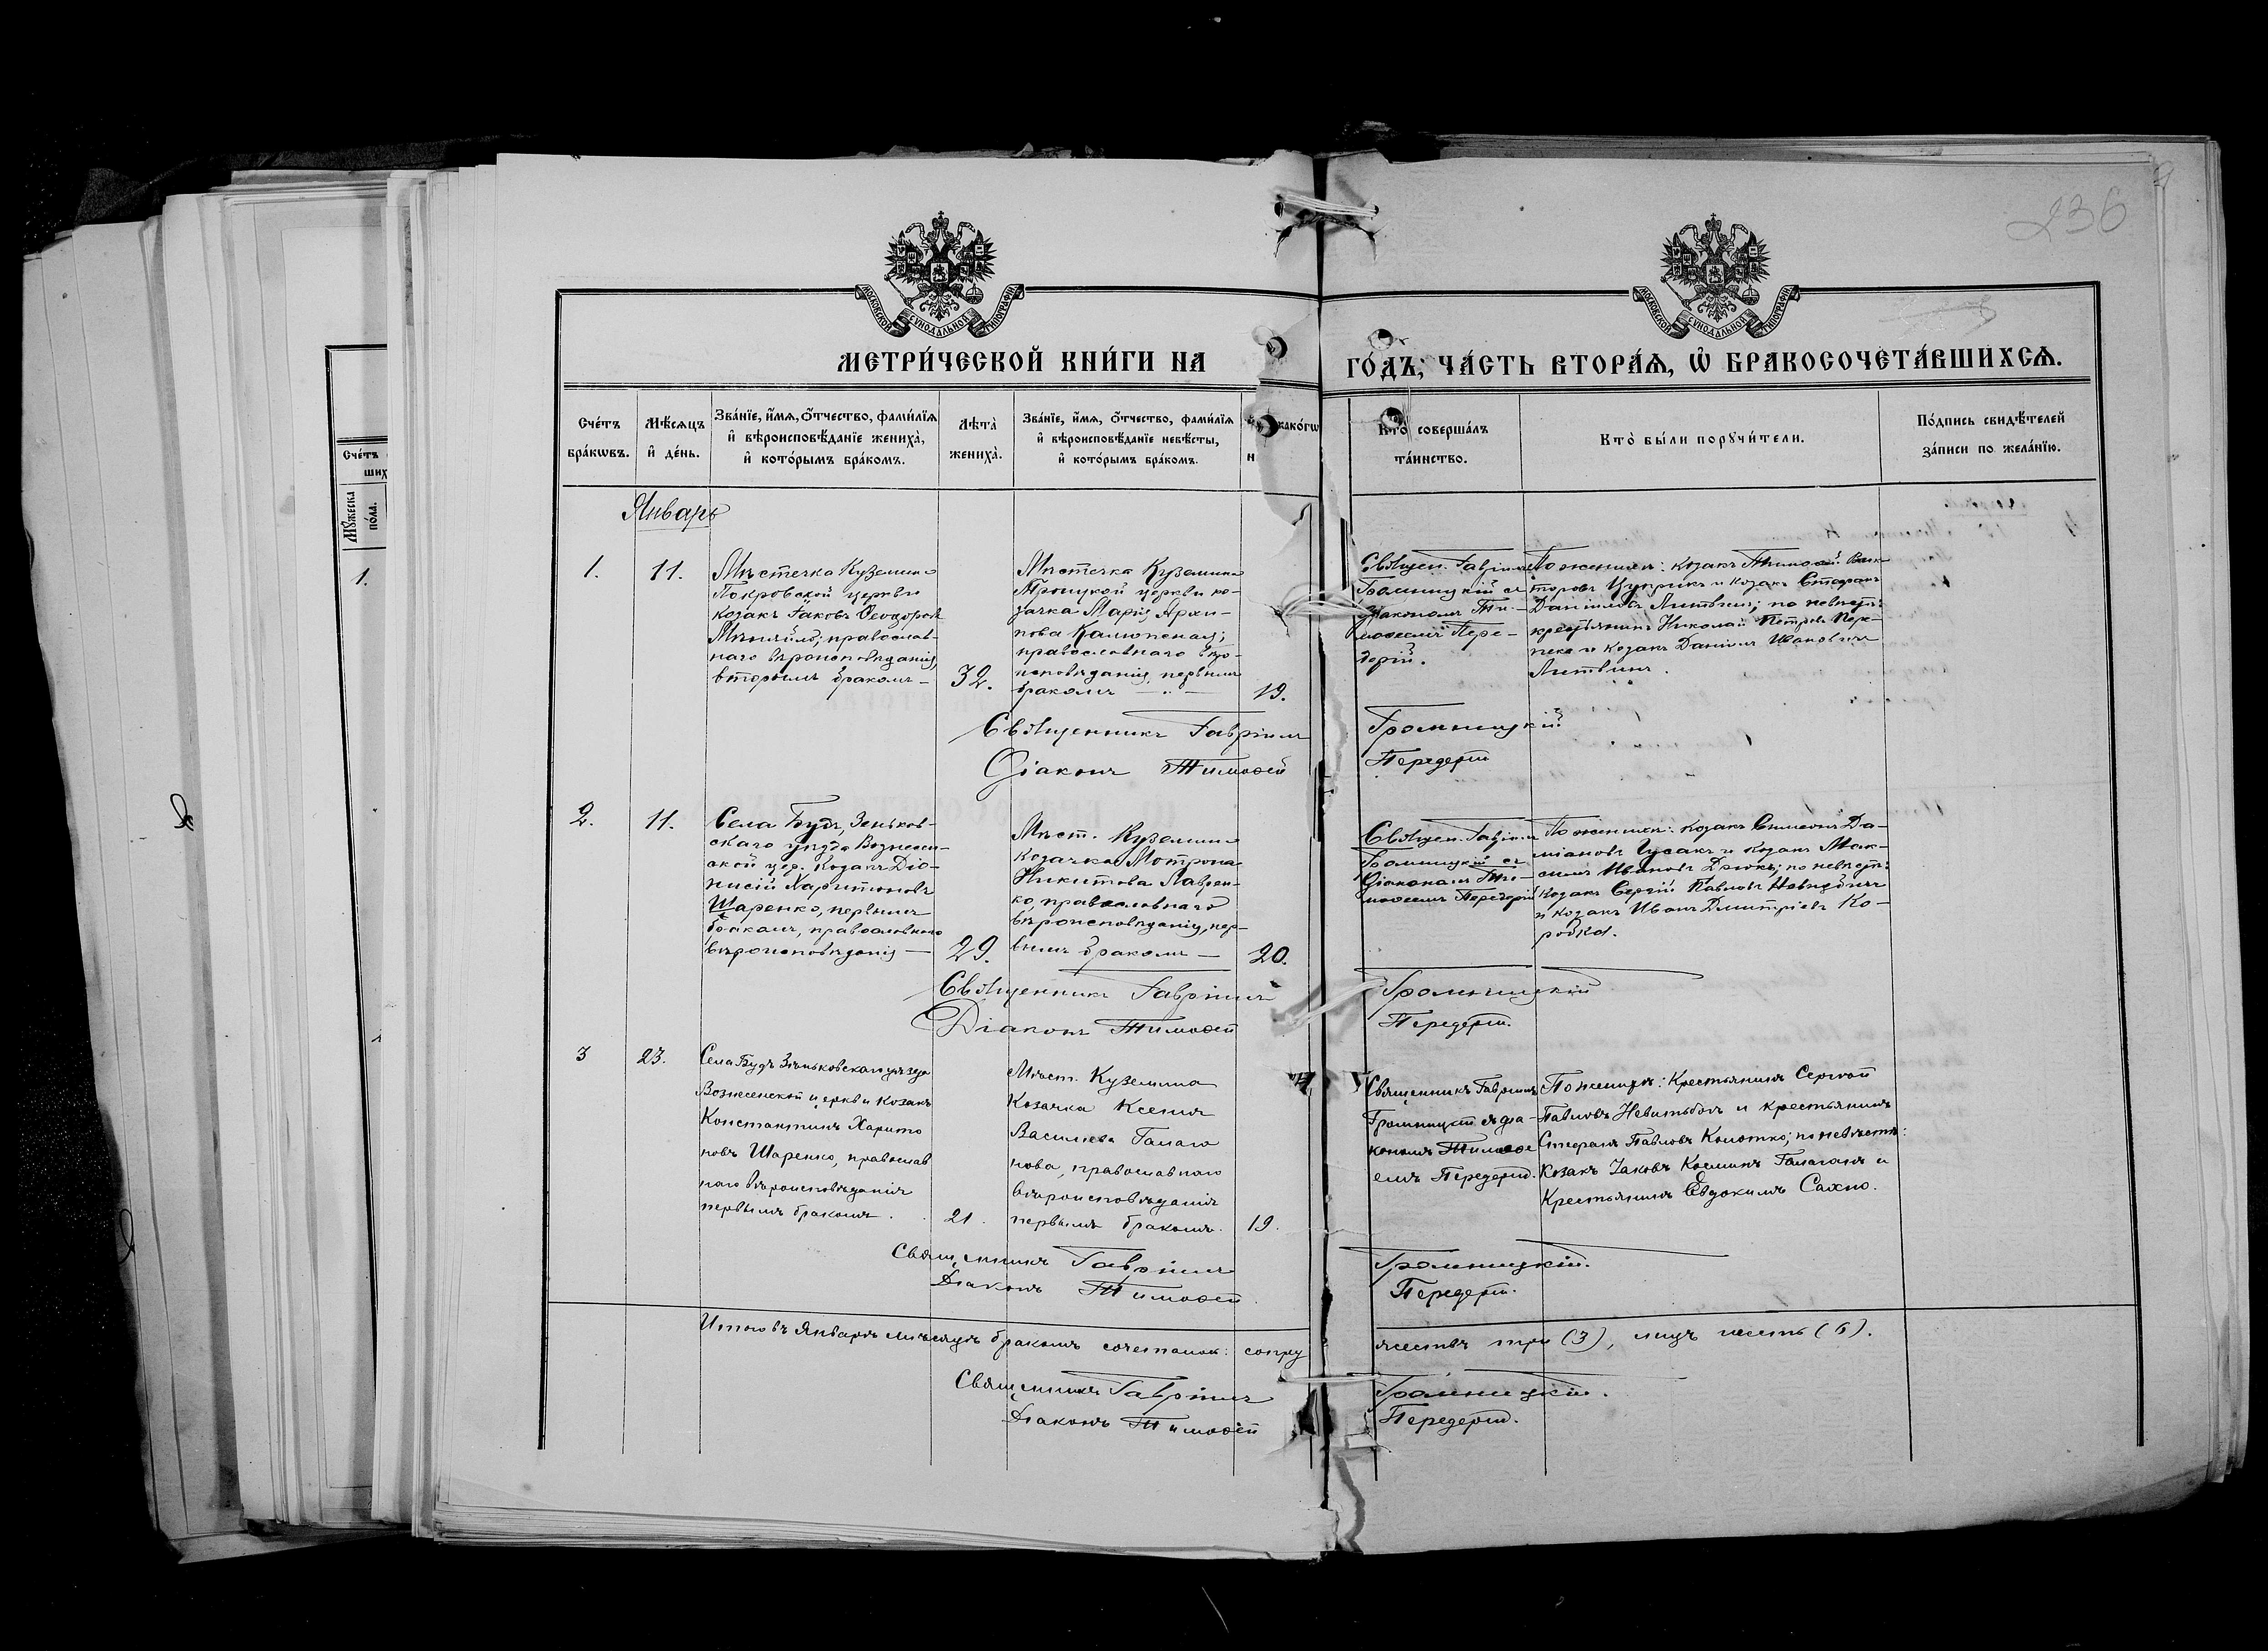 236
МОСКОВСКОЙ СУНОДАЛЬНОЙ ТИПОГРАФИИ
МОСКОВСКОЙ СУНОДАЛЬНОЙ ТИПОГРАФИИ
МЕТРИ́ЧЕСКОЙ КНИ́ГИ НА ГО́ДЪ; ЧА́СТЬ ВТОРА́Ѧ, Ѡ҆ БРАКОСОЧЕТА́ВШИХСѦ.
Сче́тъ
бра́кѡвъ.
Мѣ́сѧцъ
и҆ де́нь.
Зва́нїе, и҆́мѧ, ѻ҆́тчество, фамилїѧ
и҆ вѣроисповѣ́данїе жениха̀,
и҆ кото́рымъ бра́комъ.
Лѣта̀
жениха̀.
Зва́нїе, и҆́мѧ, ѻ҆́тчество, фамилїѧ
и҆ вѣроисповѣ́данїе невѣ́сты,
и҆ кото́рымъ бра́комъ.
Кто̀ соверша́лъ
та́инство.
Кто̀ бы́ли порꙋчи́тели.
По́дпись свидѣ́телей
за́писи по жела́нїю.
Сче́тъ
Мꙋ́жеска
по́ла.
1.
Январь
1.
11.
Мѣстечка Куземина
Покровской церкви
козакъ Іаковъ Ѳеодоровъ
православ-
наго вѣроисповѣданія,
вторымъ бракомъ —
32.
Мѣстечка Куземина
Троицкой церкви ко-
зачка Марія Архи-
пова
православнаго вѣро-
исповѣданія, первымъ
бракомъ —
19.
Священ. Гавріилъ
Громницкій съ
діакономъ Ти-
моѳеемъ Пере-
дерій.
По женихѣ: козакъ Тимоѳей Вик-
торовъ Цуприкъ и козакъ Стефанъ
Даніиловъ Литвинъ; по невѣстѣ:
крестьянинъ Николай Петровъ
и козакъ Даніилъ Ивановичъ
Литвинъ.
Священникъ Гавріилъ Громницкій
Діаконъ Тимоѳей Передерій
2.
11.
Села Будъ, Зеньков-
скаго уѣзда Вознесен-
ской цер. козакъ Діо-
нисій Харитоновъ
Шаренко, первымъ
бракомъ, православнаго
вѣроисповѣданія —
29.
Мѣст. Куземина
козачка Мотрона
Никитова Лаврен-
ко, православнаго
вѣроисповѣданія, пер-
вымъ бракомъ —
20.
Священ. Гавріилъ
Громницкій съ
діакономъ Ти-
моѳеемъ Передерій
По женихѣ: козакъ Симеонъ Да-
міановъ Гусакъ и козакъ Мак-
симъ Ивановъ по невѣстѣ:
козакъ Сергій Павловъ
и козакъ Иванъ Димитріевъ Ко-
робка.
Священникъ Гавріилъ Громницкій
Діаконъ Тимоѳей Передерій.
3
23.
Села Будъ Зѣньковскаго уѣзда
Вознесенской церкви козакъ
Константинъ Харито
новъ Шаренко, православ
наго вѣроисповѣданія
первымъ бракомъ.
21.
Мѣст. Куземина
Козачка Ксенія
Василіева Галаго
нова, православнаго
вѣроисповѣданія
первымъ бракомъ.
19.
Священникъ Гавріилъ
Громницкій съ діа-
кономъ Тимоѳе
емъ Передерій.
По женихѣ: Крестьянинъ Сергей
Павловъ и крестьянинъ
Стефанъ Павловъ Колотко; по невѣстѣ:
Козакъ Іаковъ Косминъ Галаганъ и
Крестьянинъ Евдокимъ Сахно.
Священникъ Гавріилъ Громницкій.
Діаконъ Тимоѳей Передерій.
Итого въ Январѣ мѣсяцѣ бракомъ сочеталось: супру
жествъ три (3), лицъ шесть (6).
Священникъ Гавріилъ Громницкій.
Діаконъ Тимоѳей Передерій.